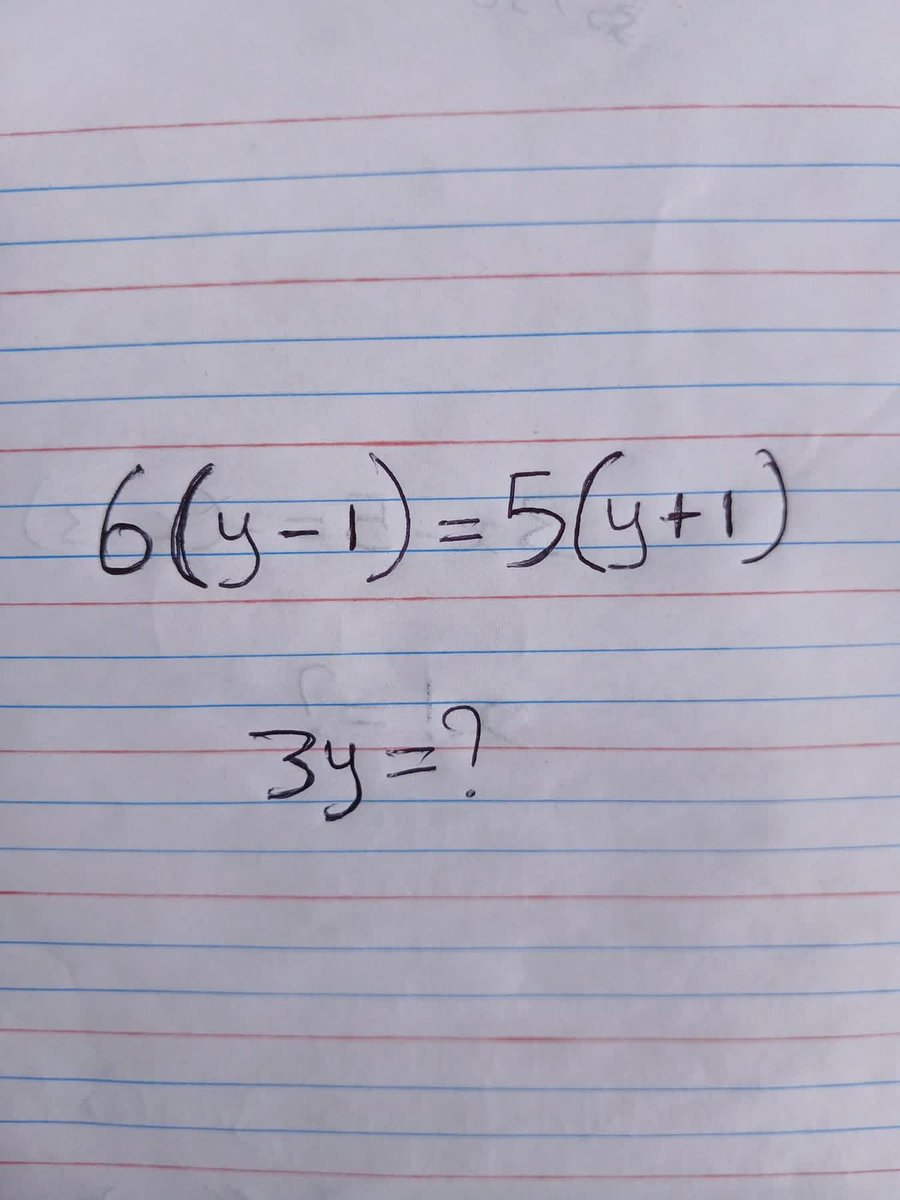 6(y-1)=5(y+1)
3y=?